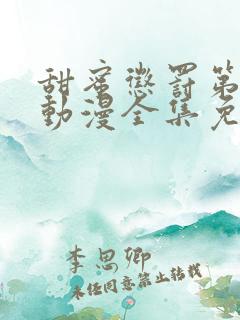 甜蜜懲罰第
動漫全集免
李思卿
未经同意禁止转载